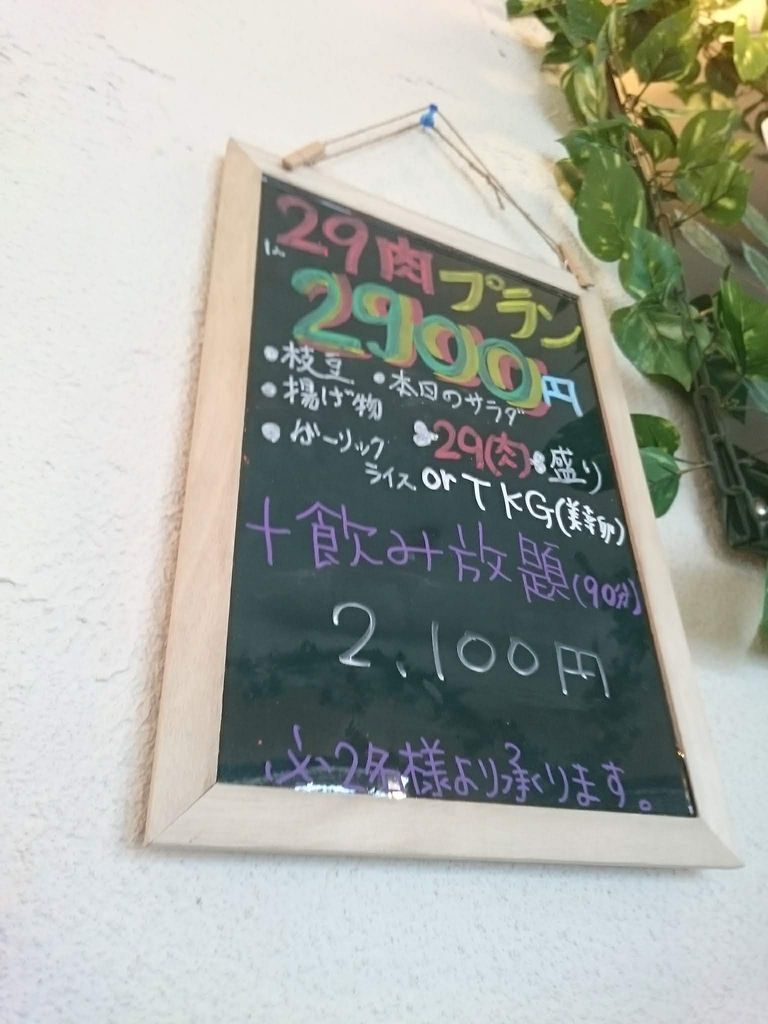 29肉プラン
2900円
・枝豆 ・本日のサラダ
・揚げ物 29(肉)盛り
・ガーリックライス or TKG(美幸卵)
+飲み放題(90分)
2,100円
2名様より承ります。